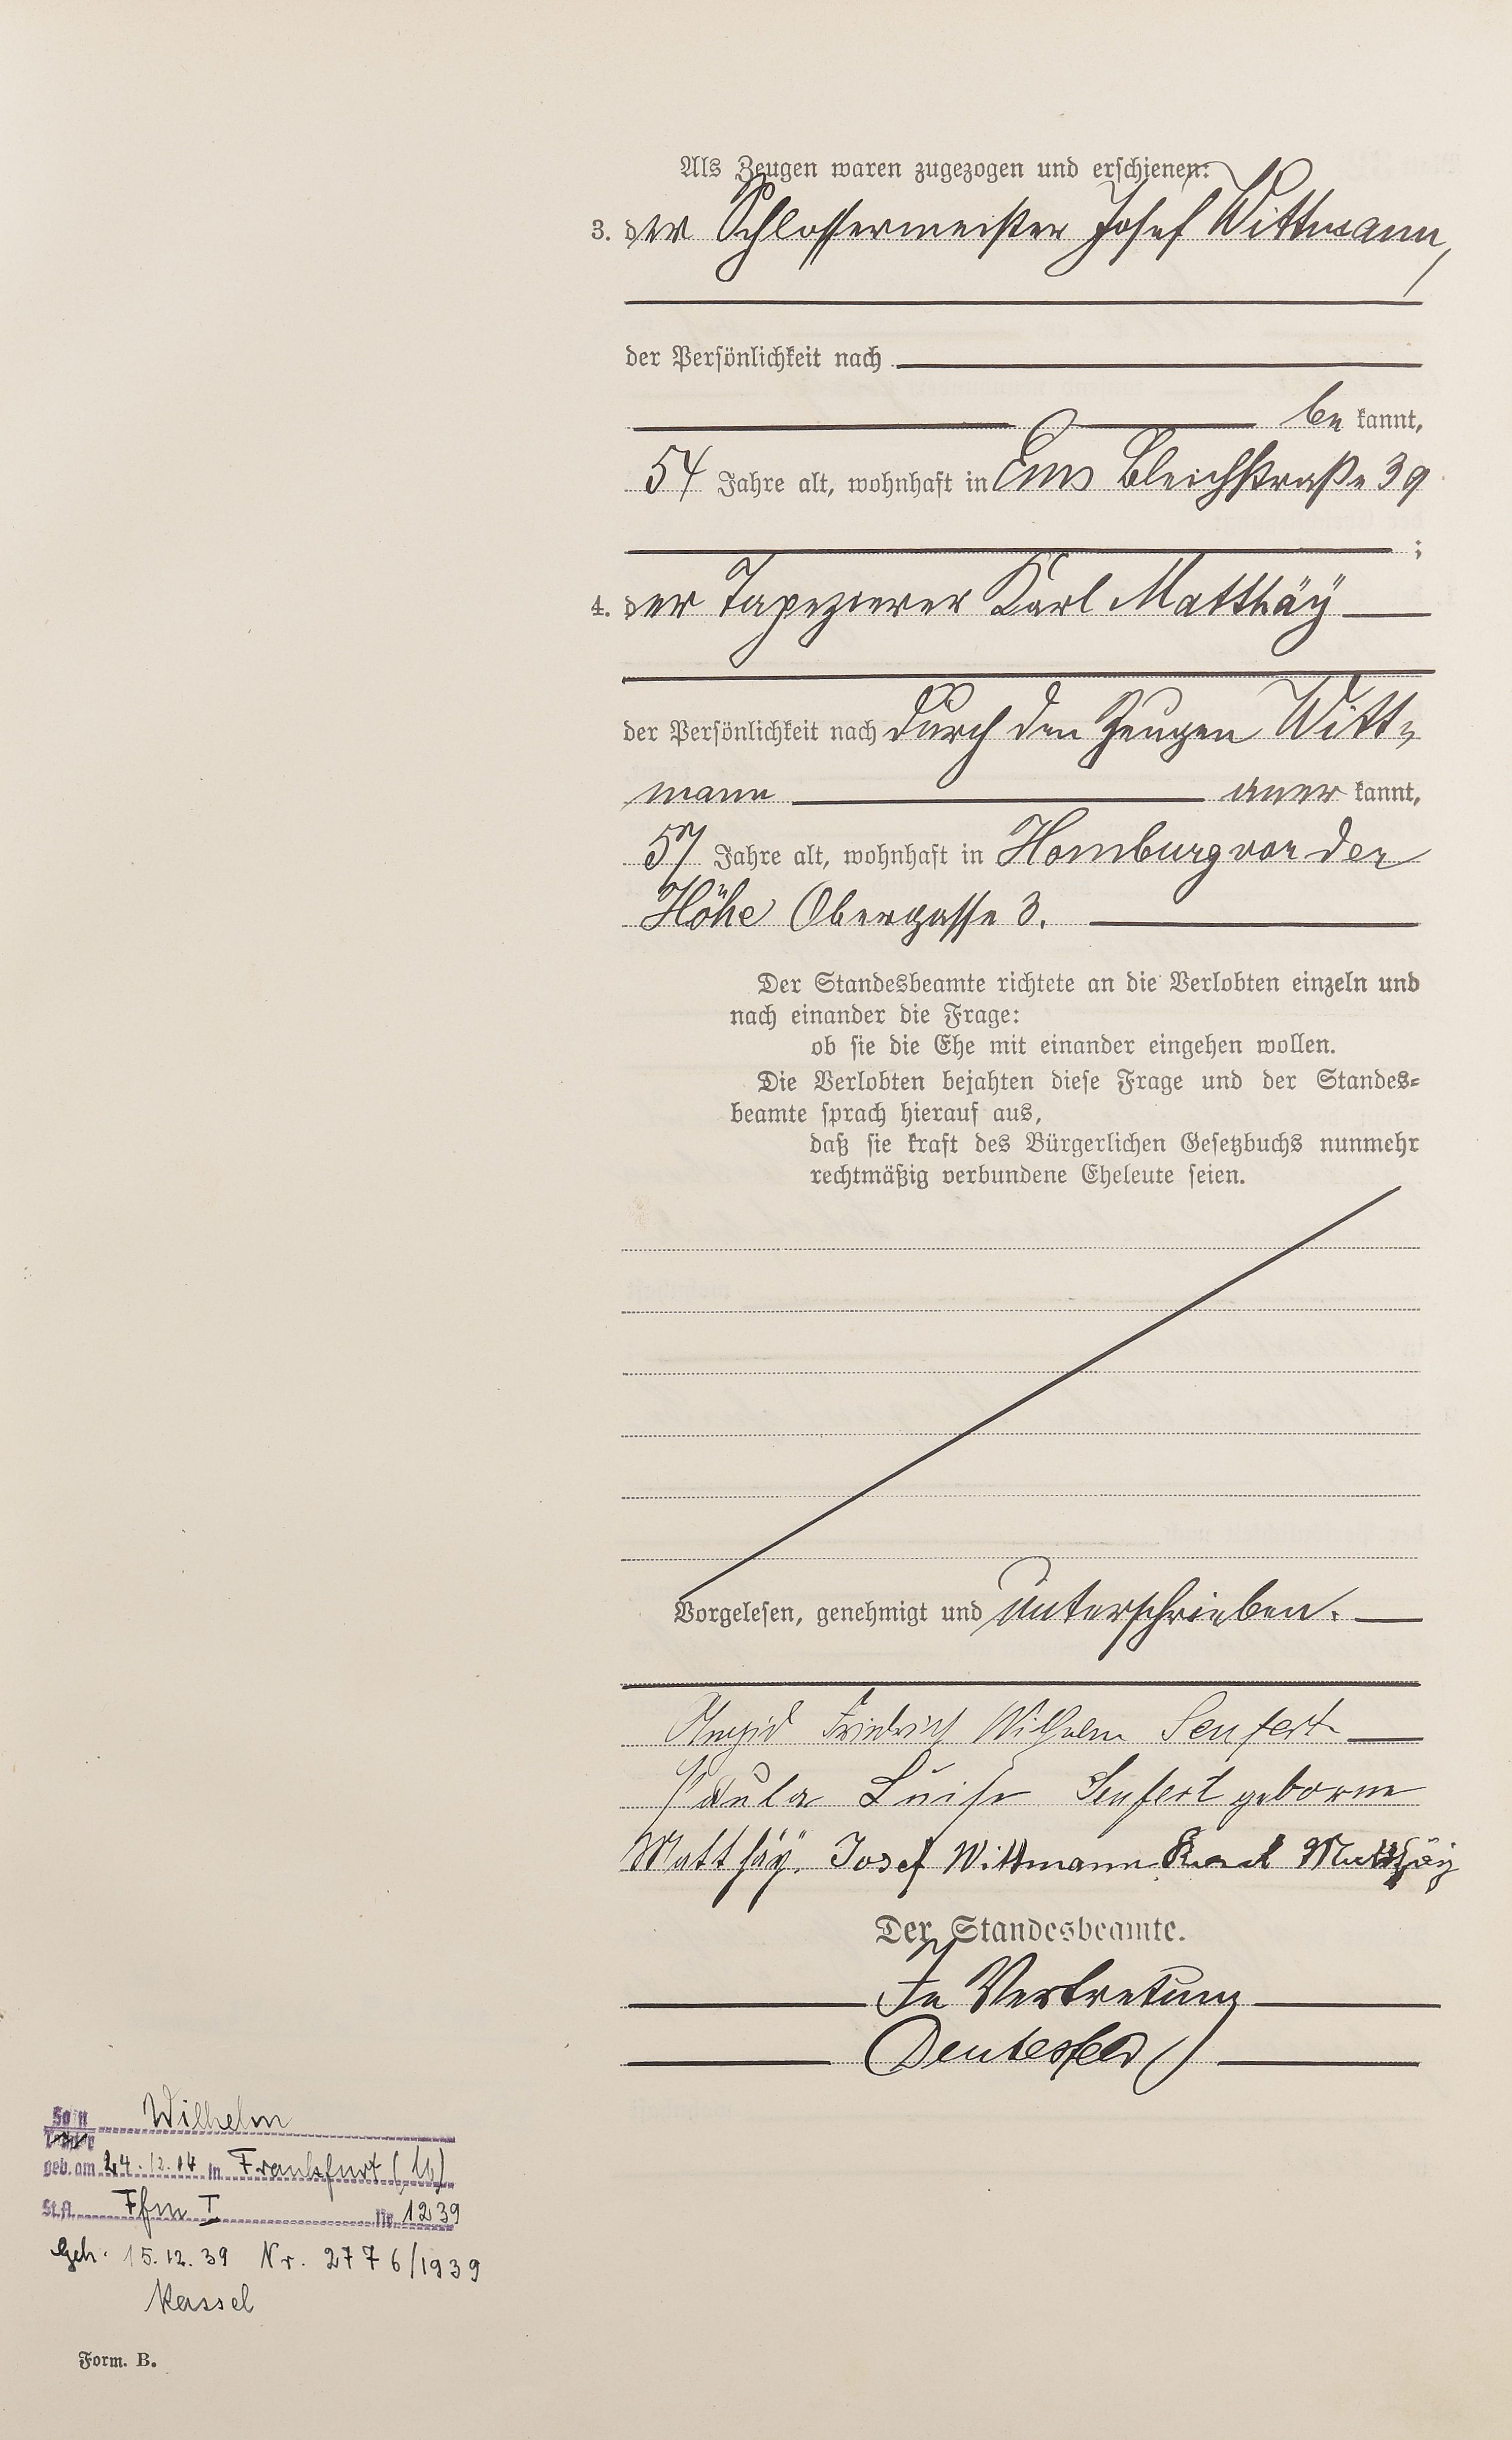 Als Zeugen waren zugezogen und erschienen:
3. der Schlossermeister Josef Wittmann,
der Persönlichkeit nach
be kannt,
54 Jahre alt, wohnhaft in Ems Bleichstraße 39
;
4. der Tapezierer Karl Matthäy
der Persönlichkeit nach durch den Zeugen Witt-
mann aner kannt,
57 Jahre alt, wohnhaft in Homburg vor der
Höhe Obergasse 3.
Der Standesbeamte richtete an die Verlobten einzeln und
nach einander die Frage:
ob sie die Ehe mit einander eingehen wollen.
Die Verlobten bejahten diese Frage und der Standes-
beamte sprach hierauf aus,
daß sie kraft des Bürgerlichen Gesetzbuchs nunmehr
rechtmäßig verbundene Eheleute seien.
Vorgelesen, genehmigt und unterschrieben.
Friedrich Wilhelm Seufert
Paula Luise Seufert geborne
Matthäy. Josef Wittmann Karl Matthäy
Der Standesbeamte.
In Vertretung
Sohn Wilhelm
geb. am 24.12.04 in Frankfurt (M)
St.A. Ffm I Nr. 1239
Geh. 15.12.39 Nr. 2776/1939
Kassel
Form. B.